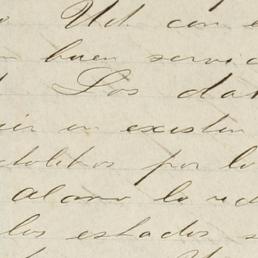 Ud con e
n buen servic
Los dat
en existen
ctolitros por lo
alamo lo re
los estados s